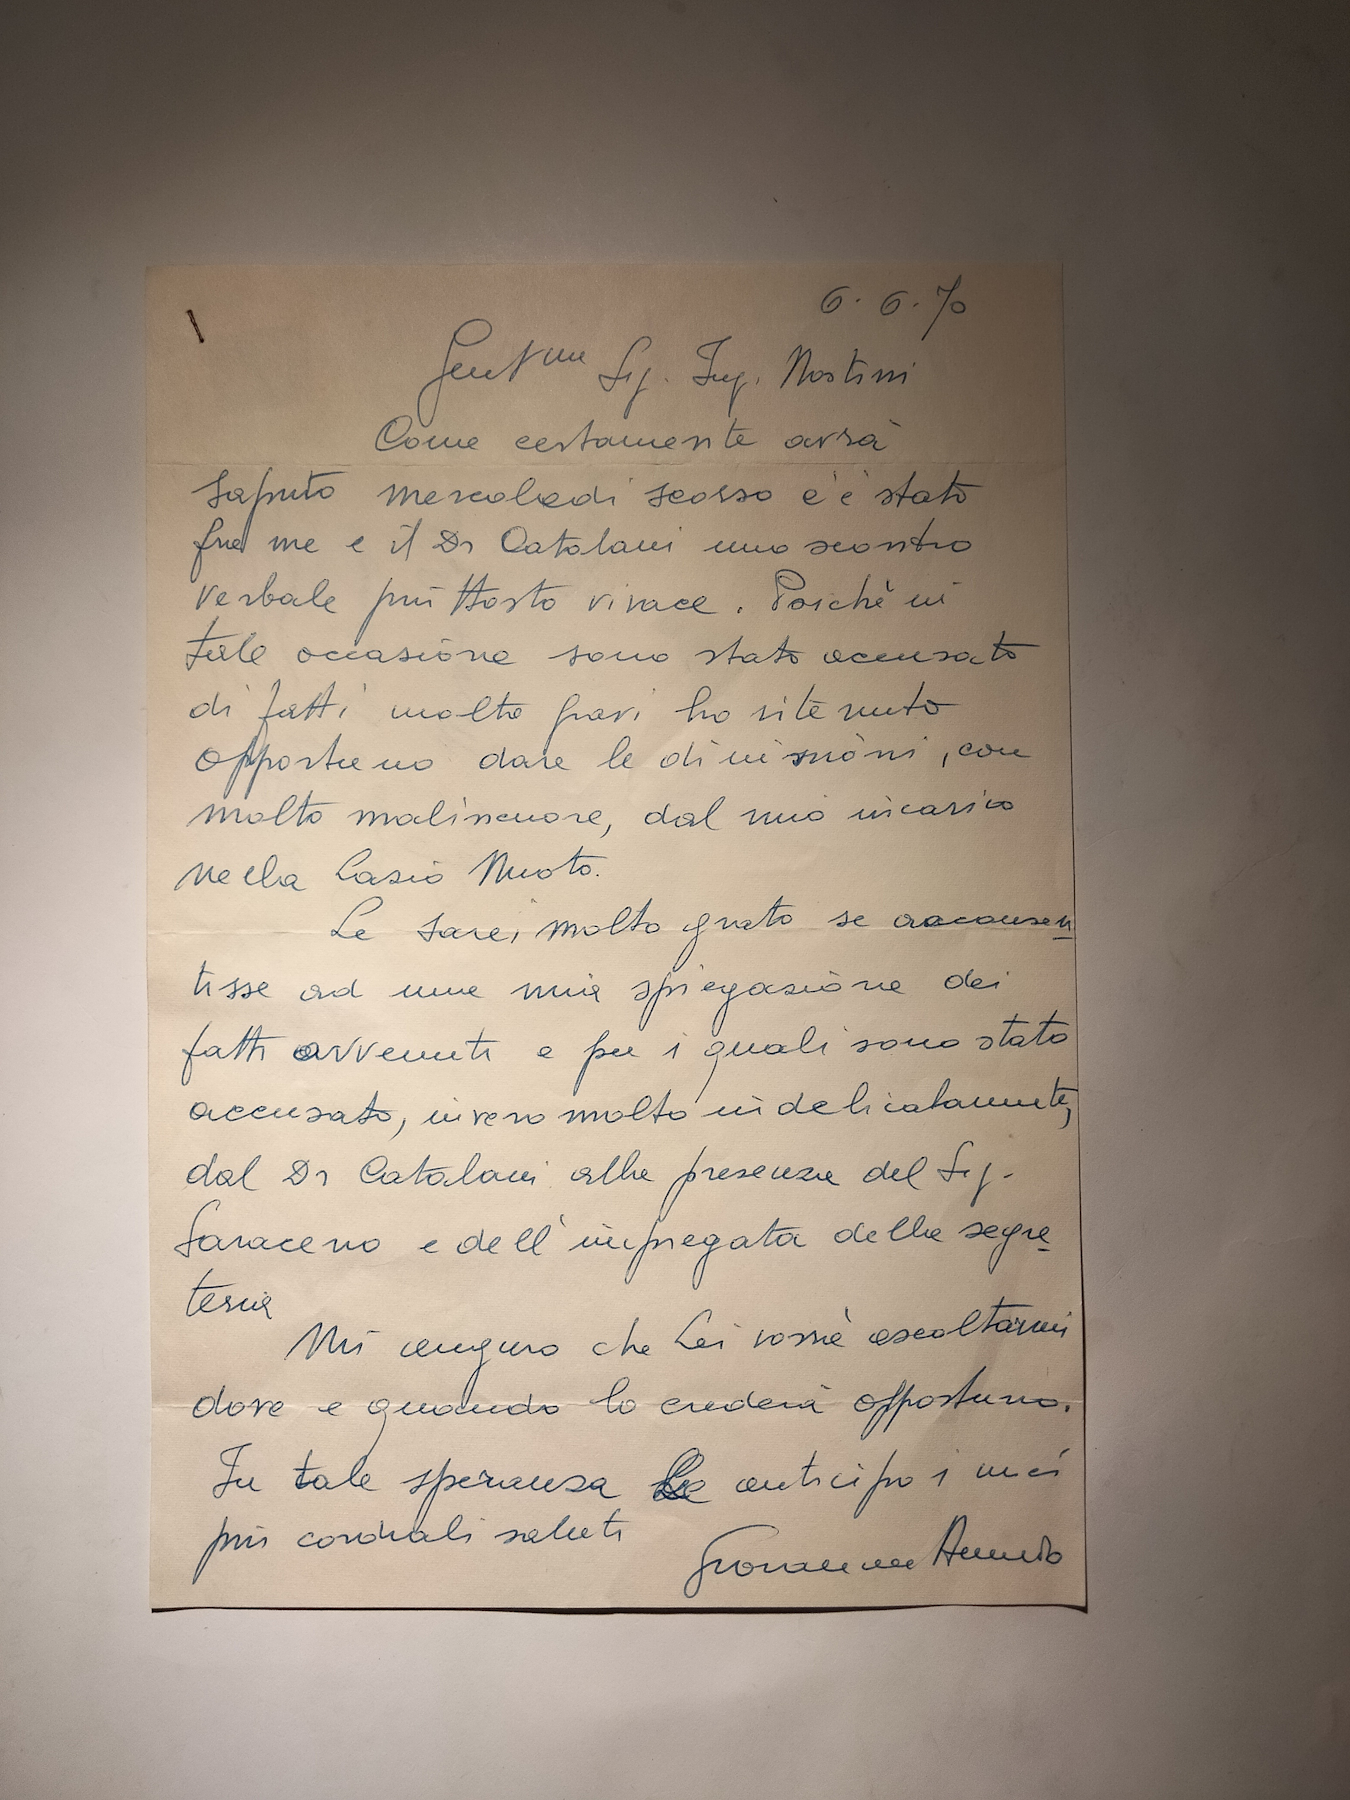 6.6.70
Gent.mo Sig. Ing. Nostini
Come certamente avrà
saputo mercoledì scorso c'è stato
fra me e il Dr Catalani uno scontro
verbale piuttosto vivace. Poichè in
tale occasione sono stato accusato
di fatti molto gravi ho ritenuto
opportuno dare le dimissioni, con
molto malincuore, dal mio incarico
nella Lazio Nuoto.
Le sarei molto grato se acconsen
tisse ad una mia spiegazione dei
fatti avvenuti e per i quali sono stato
accusato, invero molto indelicatamente,
dal Dr Catalani alla presenza del Sig.
Saraceno e dell'impiegata della segre
teria
Mi auguro che Lei vorrà ascoltarmi
dove e quando lo crederà opportuno.
In tale speranza Le anticipo i miei
più cordiali saluti
Giovanni